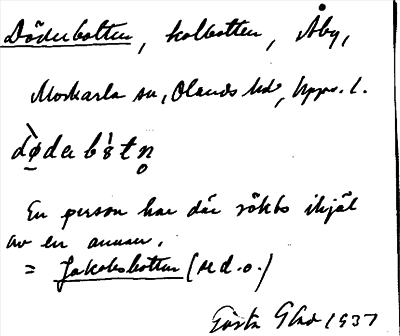 Döderbotten, kolbotten, Åby,
Morkarla sn, Olands hd, Upps. l.
En person har där rökts ihjäl
av en annan.
= Jakobsbotten (se d.o.)
Gösta 1937